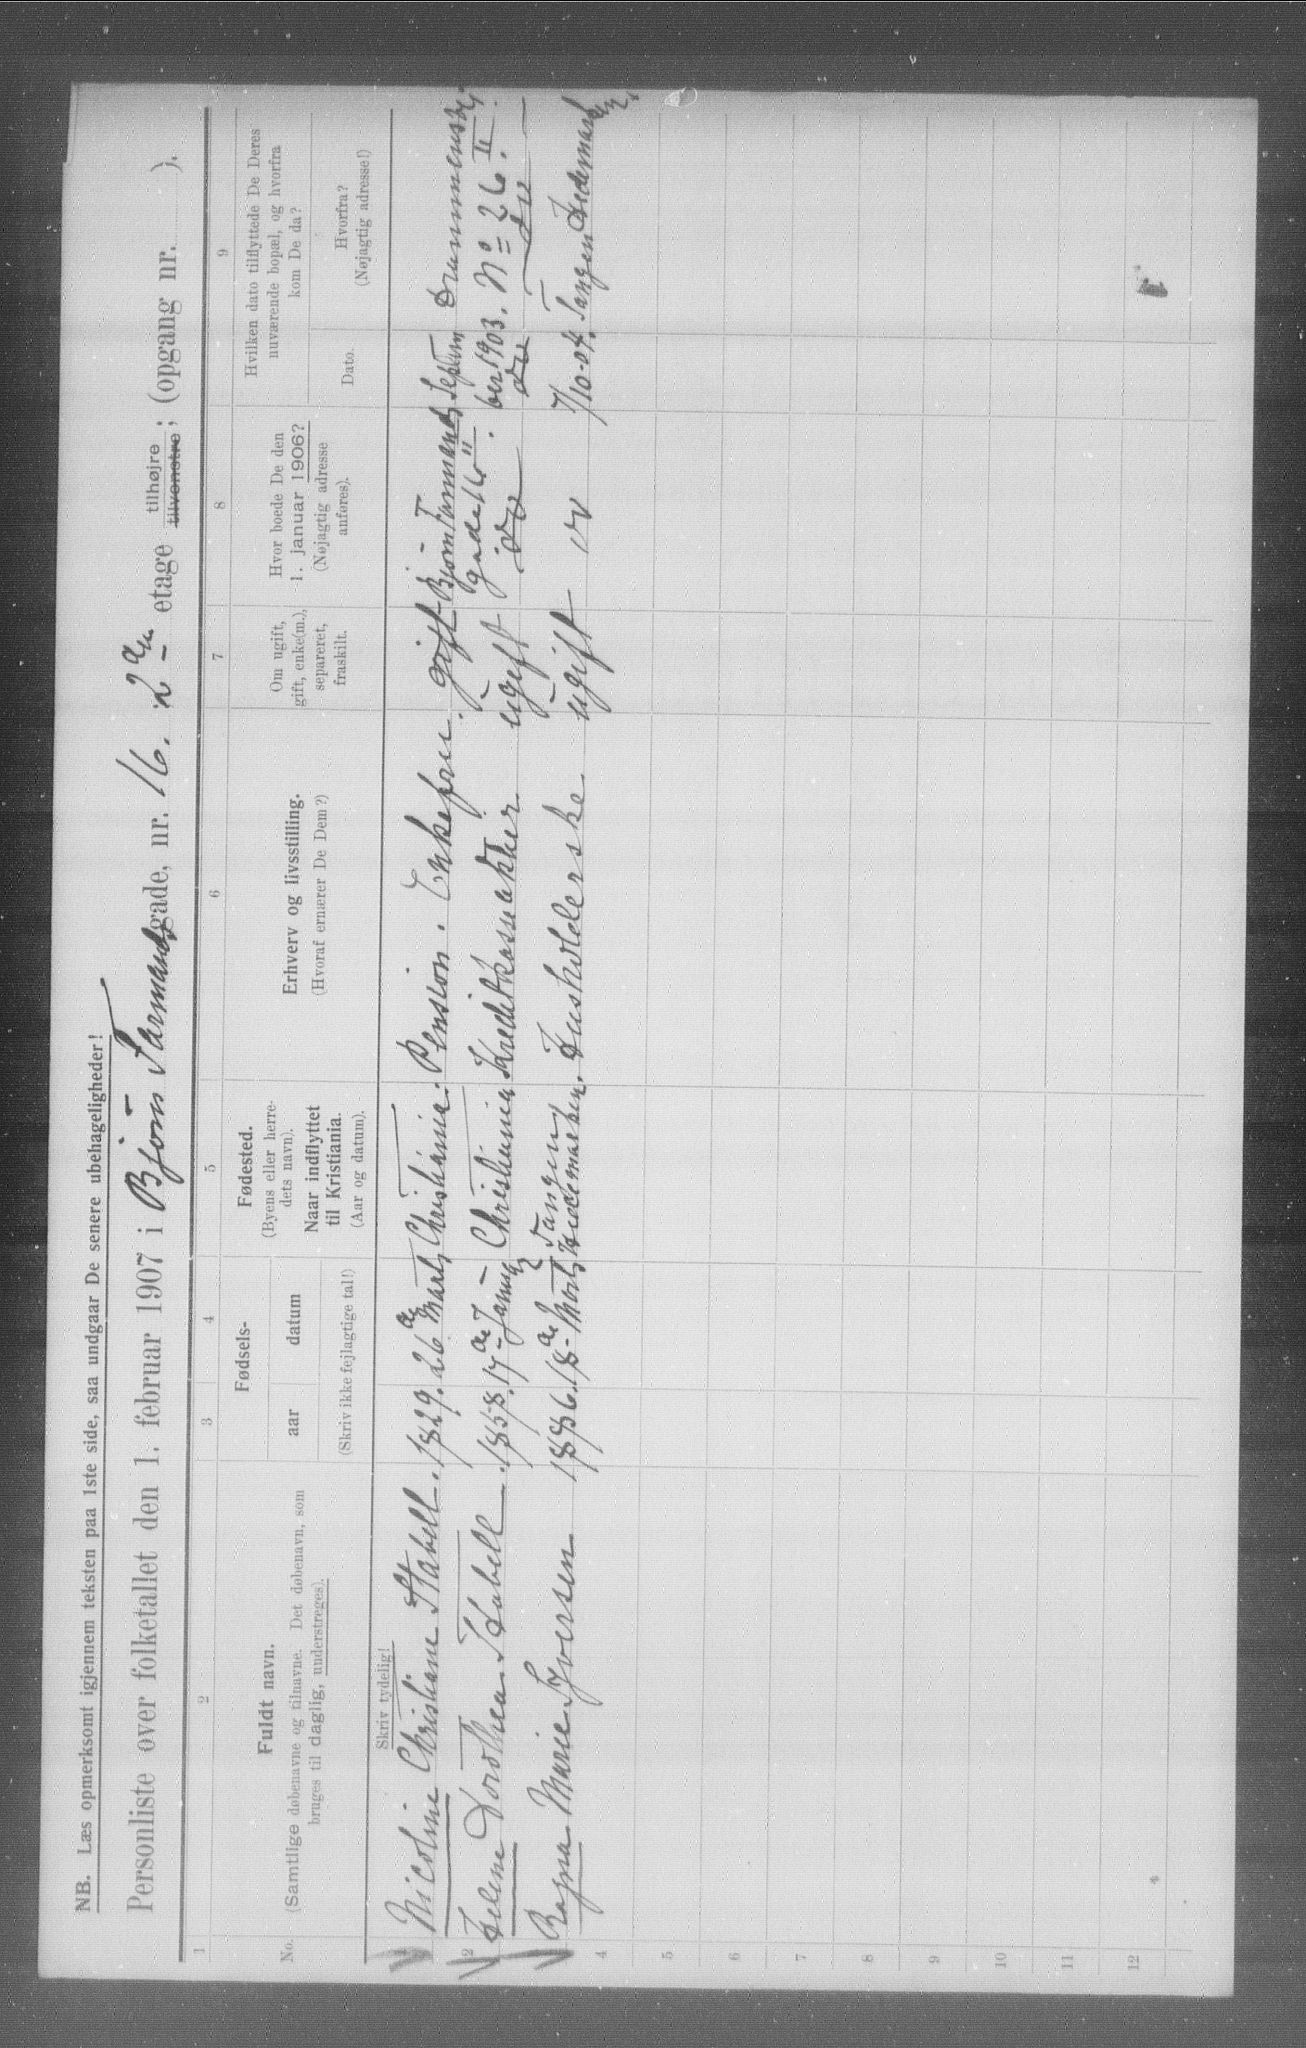 NB. Læs opmerksomt igjennem teksten paa 1ste side, saa undgaar De senere ubehageligheder!
Personliste over folketallet den 1. februar 1907 i Bjørn Farmandsgade, nr. 16. 2den etage tilhøjre tilvenstre; (opgang nr. ).
1 2 3 4 5 6 7 8 9
No.
Fuldt navn.
(Samtlige døbenavne og tilnavne. Det døbenavn, som
bruges til daglig, understreges).
Fødsels-
aar datum
(Skriv ikke fejlagtige tal!)
Fødested.
(Byens eller herre-
dets navn).
Naar indflyttet
til Kristiania.
(Aar og datum).
Erhverv og livsstilling.
(Hvoraf ernærer De Dem?)
Om ugift,
gift, enke(m.),
separeret,
fraskilt.
Hvor boede De den
1. januar 1906?
(Nøjagtig adresse
anføres).
Hvilken dato tilflyttede De Deres
nuværende bopæl, og hvorfra
kom De da?
Dato.
Hvorfra?
(Nøjagtig adresse!)
Skriv tydelig!
1 Nicoline Christiane Stabell. 1829. 26de Marts Christiania. Pension. Enkefrue. gift Bjørn Farmands gade 16". September 1903. Drammensvej No 26. II
2 Helene Dorothea Stabell. 1858. 17de Januar Christiania Kreditkasnakker ugift do do do
Ragna Marie Iversen 1886. 18de Marts Tangen Hedemarken. Husholderske ugift do 7/10-04. Tangen Hedemarken
4
5
6
7
8
9
10
11
12